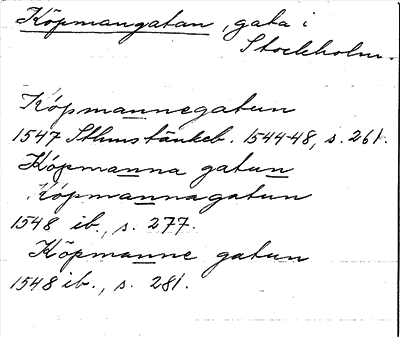 Köpmangatan, gata i
Stockholm.
Köpmannegatun
1547 Sthms tänkeb. 1544-48, s. 261.
Köpmanna gatun
Köpmannagatun
1548 ib., s. 277.
Köpmanne gatun
1548 ib., s. 281.